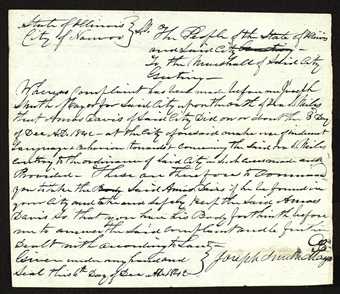 State of Illinois } Ss. The People of the State of Illinois
City of Nauvoo } and said City
To the Marshall of said City
Greeting—
Whereas Complaint has been made before me Joseph
Smith Mayor for said City upon the oath of
that Amos Davis of said City did on or about the 3 day
of Dec AD. 1842 - at the City of aforesaid make use of indecent
language & behavior
contrary to the ordinances of said City in such case made and
Provided — These are therefore to Command
you to take the said Amos Davis if he be found in
your City and safely keep the said Amos
Davis so that you have his Body forthwith before
me to answer the said Complaint and be further
Dealt with according to Law—
Given under my hand and
Seal this 6th Day of Dec AD 1842 } Joseph Smith Mayor